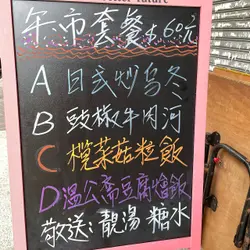 better future
午市套餐$60元
A 日式炒乌冬
B 豉椒牛肉河
C 欖菜菇粒飯
D 溫公斋豆腐燴飯
敬送:靚湯 糖水